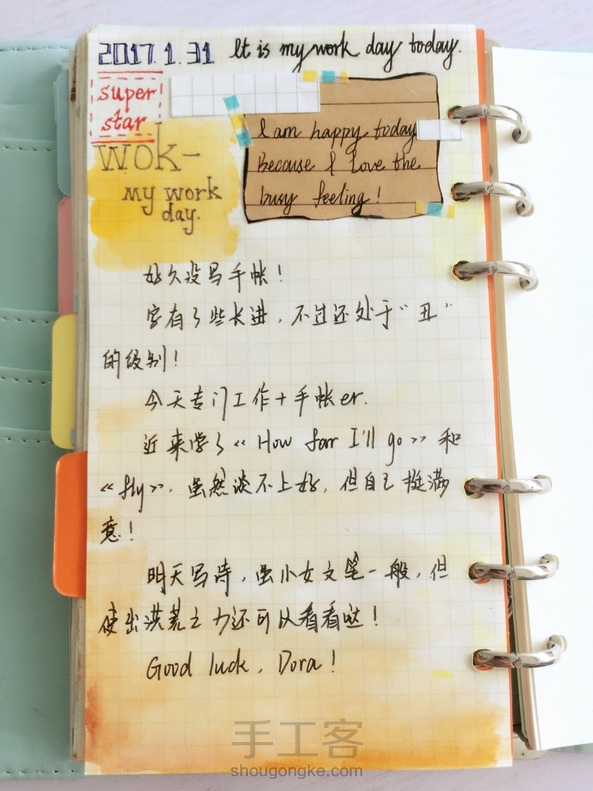 2017.1.31 It is my work day today.
super
star.
WOK-
my work
day.
I am happy today
Because I love the
busy feeling!
好久没写手帐!
字有了些长进,不过还处于“丑”
的级别!
今天专门工作+手帐er.
近来学了《How far I'll go》和
《fly》,虽然谈不上好,但自己挺满
意!
明天写诗,虽小女文笔一般,但
使出洪荒之力还可以看看哒!
Good luck, Dora!
手工客
shougongke.com